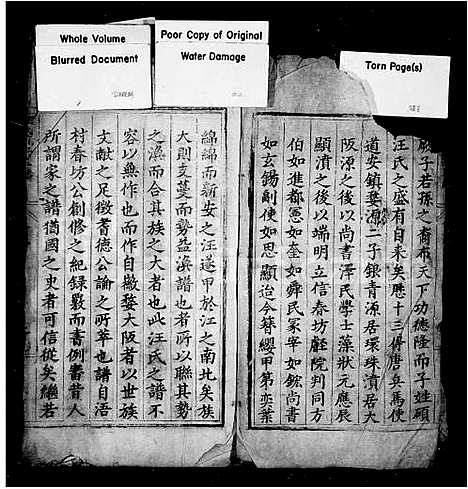 Whole Volume
Blurred Document
Poor Copy of Original
Water Damage
Torn Page(s)
子若孫之裔布天下功德隆而子姓碩
汪氏之盛有自来矣歴十三得唐兵馬使
道安鎮婺源二子銀青源居環珠漬居大
阪源之後以尚書澤民學士藻狀元應辰
顯漬之後以端明立信春坊叡院判同方
伯如進都憲如奎如舜民冢宰如鋐尚書
如玄錫副使如思顯迨今簪纓甲第奕葉
綿綿而新安之汪遂甲於江之南北矣族
大則支蔓而勢益渙譜也者所以聯其勢
之渙而合其族之大者也此汪氏之譜不
容以無作也而作自徽婺大阪者以世族
文献之足徴耆德公論之所萃也譜自浯
村春坊公創修之紀録嚴而書例審昔人
所謂家之譜猶國之史者可信從矣繼若